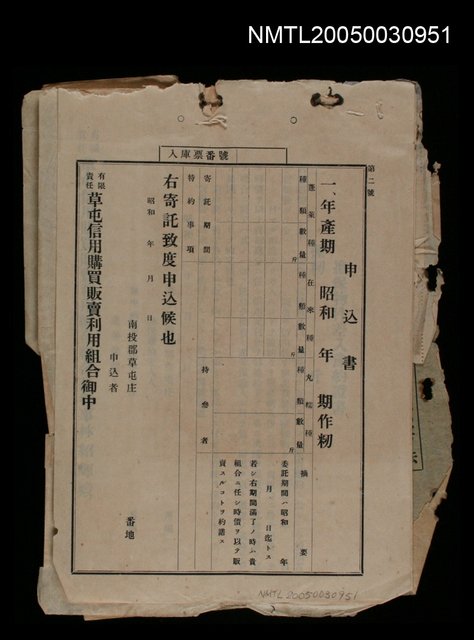 NMTL20050030951
入庫票番號
第二號
申込書
一、年產期 昭和 年 期作籾
蓬萊種 在來種 丸糯種 摘要
種類 數量 種類 數量 種類 數量
斤 斤 斤
委託期間ハ昭和 年
月 日迄トス
若シ右期間滿了ノ時ハ貴
組合ニ任シ時價ヲ以テ販
賣スルコトヲ約諾ス
寄託期間 持參者
特約事項
右寄託致度申込候也
昭和 年 月 日
南投郡草屯庄 番地
申込者
有限責任 草屯信用購買販賣利用組合御中
NMTL20050030951